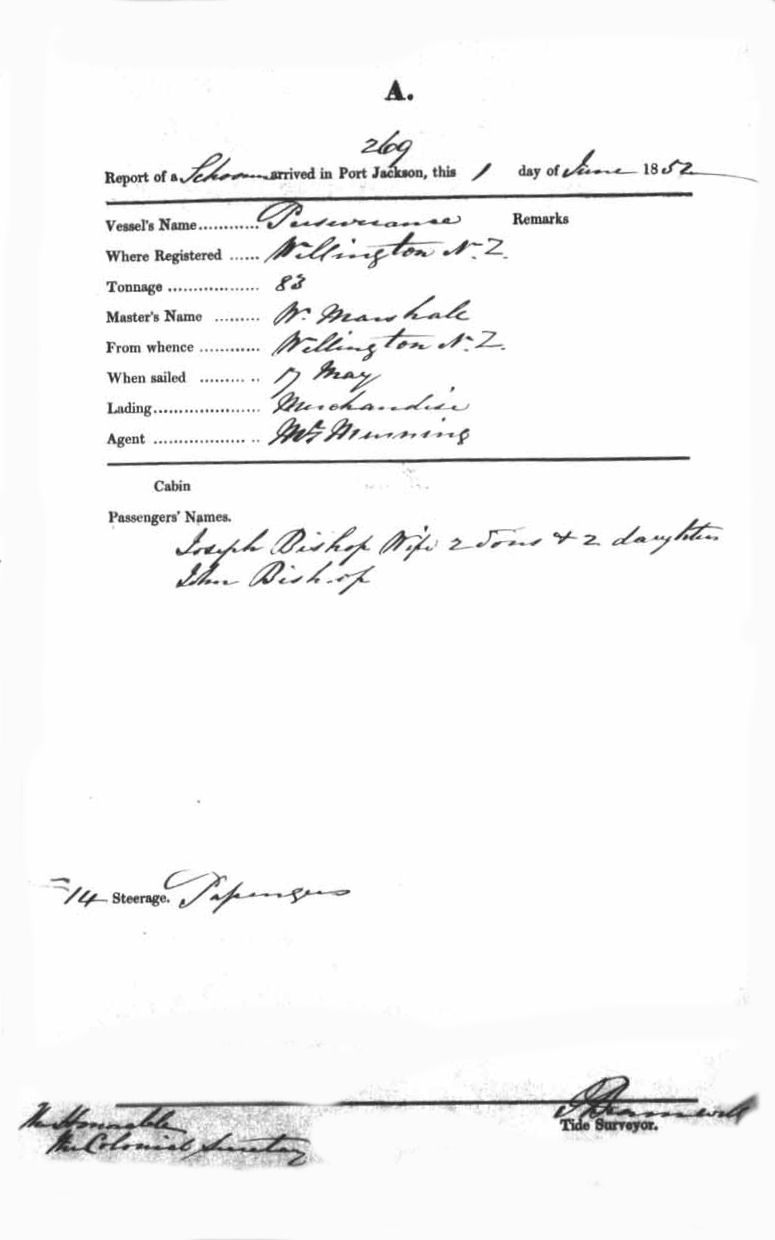 A.
269
Report of a Schooner arrived in Port Jackson, this 1 day of June 1852
Vessel's Name............ Perseverance Remarks
Where Registered ...... Wellington N.Z.
Tonnage .................. 83
Master's Name ......... W. Marshall
From whence ............ Wellington N.Z.
When sailed ......... .. 17 May
Lading..................... Merchandise
Agent .................. ..
Cabin
Passengers' Names.
Joseph Bishop Wife 2 Sons & 2 daughters
John Bishop
14 Steerage. Passengers
The Honorable
The Colonial Secretary
Tide Surveyor.